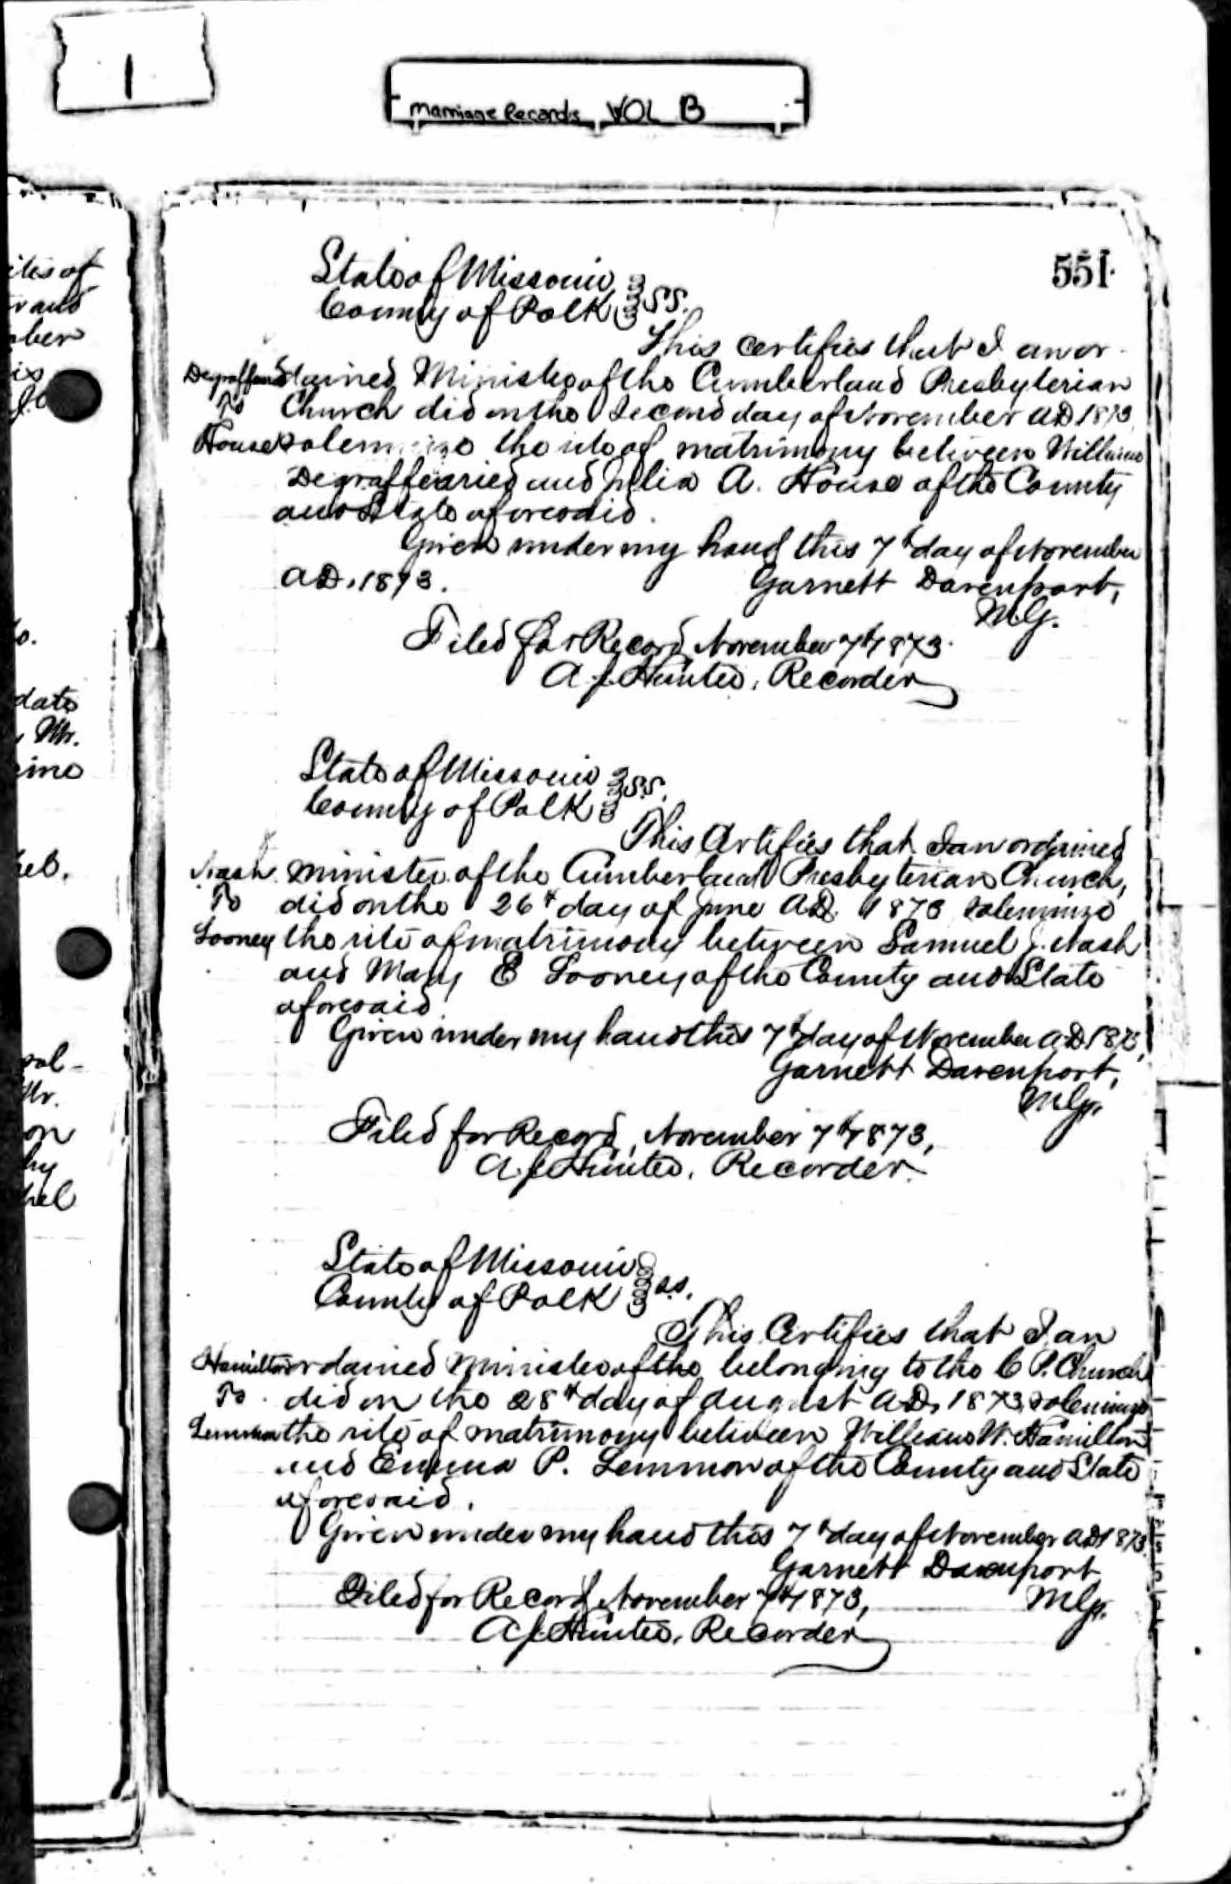 1
Marriage Records VOL B
551.
State of Missouri
County of Polk SS.
This certifies that I an or-
Degraffenried dained Minister of the Cumberland Presbyterian
To Church did on the Second day of November AD 1873,
House solemnize the rite of matrimony between William
Degraffenried and Julia A. House of the County
and State aforesaid.
Given under my hand this 7th day of November
AD. 1873. Garnett Davenport,
M.G.
Filed for Record, November 7th 1873.
A. J. Hunter, Recorder
State of Missouri
County of Polk SS.
This Certifies that I an ordained
Nash minister of the Cumberland Presbyterian Church,
To did on the 26th day of June AD. 1873 solemnize
Looney the rite of matrimony between Samuel J. Nash
and Mary E Looney of the County and State
aforesaid.
Given under my hand this 7th day of November AD 1873,
Garnett Davenport,
M.G.
Filed for Record, November 7th 1873,
A. J. Hunter, Recorder.
State of Missouri
County of Polk s.s.
This Certifies that I an
Hamilton ordained Minister of the belonging to the C. P. Church
To did on the 28th day of August AD. 1873 solemnize
Lemmon the rite of matrimony between William W. Hamilton
and Emma P. Lemmon of the County and State
aforesaid.
Given under my hand this 7th day of November AD 1873.
Garnett Davenport
M.G.
Filed for Record, November 7th 1873,
A. J. Hunter, Recorder